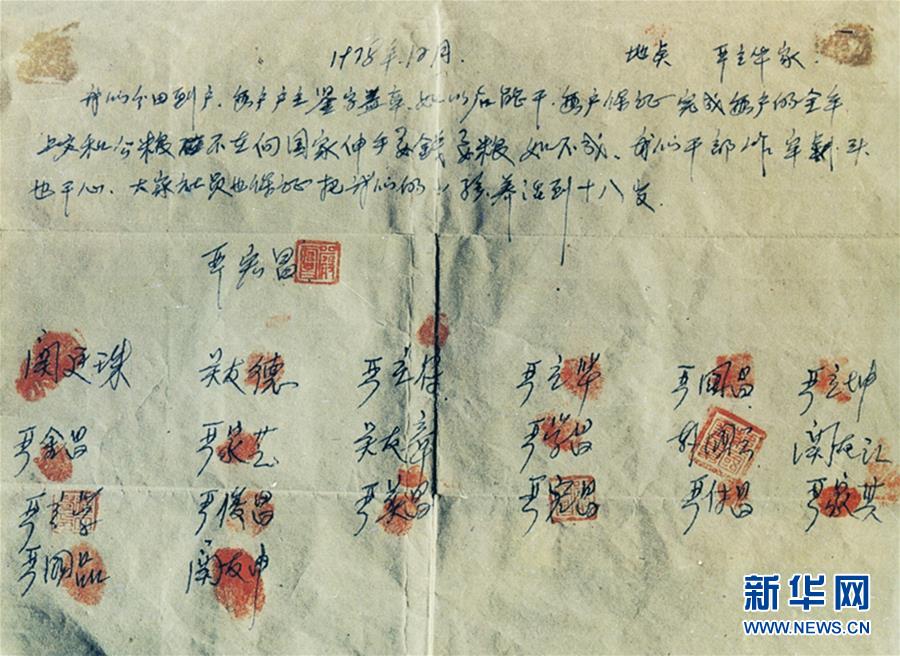 1978年12月. 地点 严立华家.
我们分田到户,每户户主签字盖章,如以后能干,每户保证完成每户的全年
上交和公粮不在向国家伸手要钱要粮如不成,我们干部作牢剎头
也干心,大家社员也保证把我们的小孩养活到十八岁.
严宏昌
关廷珠 关友德 严立付 严立华 严国昌 严立坤
严金昌 严家芝 关友章 严学昌 韩国云 关友江
严立学 严俊昌 严美昌 严宏昌 严付昌 严家其
严国品 关友申
新华网
WWW.NEWS.CN